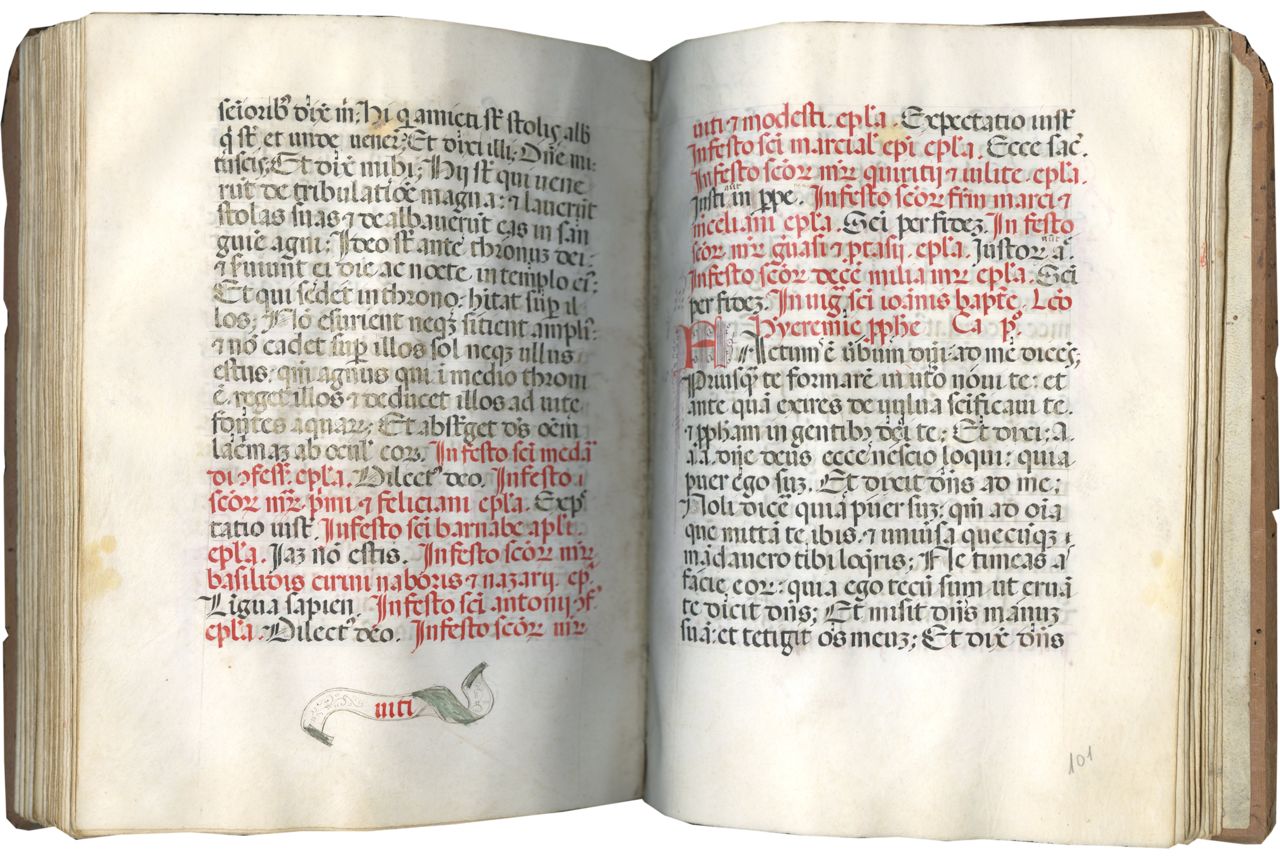 sc̄ioribꝰ dix̄ m̄: Hi q̄ amicti sr̄ stolis alb̄
q̄ sr̄ et unde vener̄: Et dixi illi: Dn̄e mi
tu scis: Et dix̄ mihi: Hij sr̄ qui vene
rūt de tribulatiōe magna: ⁊ laverūt
stolas suas ⁊ dealbaverūt eas in san
guiē agni: Ideo sr̄ ante thronuꝫ dei:
⁊ ſ̄viunt ei die ac nocte in templo eiꝰ:
Et qui sedet in throno: hītat sup̄ il
los: Nō esurient neqꝫ sitient ampliꝰ:
⁊ nō cadet sup̄ illos sol neqꝫ ullus
estus: qm̄ agnus qui ī medio throni
ē. reget illos ⁊ deducet illos ad vite
fontes aquaꝝ: Et abst̄get ds̄ oēm
lac̄maꝫ ab ocul' eoꝝ: In festo sc̄i medā
di ꝯfess̄. epl̄a. Dilectꝰ deo. In festo
sc̄oꝝ mr̄ꝝ p̄mi ⁊ feliciani epl̄a. Exp̄
tatio iust̄. In festo sc̄i barnabe apl̄i
epl̄a. Iaꝫ nō estis. In festo sc̄oꝝ mr̄ꝝ
basilidis cirini naboris ⁊ nazarij ep̄.
Ligua sapien̄. In festo sc̄i antonij ꝯf̄
epl̄a. Dilectꝰ deo. In festo sc̄oꝝ mr̄ꝝ
viti
viti ⁊ modesti. epl̄a. Expectatio iust̄
In festo sc̄i marcial' ep̄i epl̄a. Ecce sac̄.
In festo sc̄oꝝ mr̄ꝝ quiritij ⁊ iulite. epl̄a.
Iusti aūt in ꝑpe. In festo sc̄oꝝ fr̄m marci ⁊
m̄celiani epl̄a. Sc̄i per fideꝫ. In festo
sc̄oꝝ mr̄ꝝ ḡvasi ⁊ ꝓtasij. epl̄a. Iustoꝝ aūt ā.
In festo sc̄oꝝ decē milia mr̄ꝝ epl̄a. Sc̄i
per fideꝫ. In vig̃ sc̄i ioānis bapte. Leō
Hyeremie ꝓphe Ca pº
FActum ē v̄bum dn̄i ad mē dicēs:
Priusqꝫ te formarē in ut̄o novi te: et
ante quā exires de vulva sc̄ificavi te.
⁊ ꝓpham in gentibꝫ dedi te: Et dixi: A.
a.a. dn̄e deus ecce nescio loqui: quia
puer ego suꝫ. Et dixit dn̄s ad me:
Noli dicē quia puer suꝫ: qm̄ ad oīa
que mittā te ibis. ⁊ univ̄sa quecūqꝫ
mādavero tibi loq̄ris: Ne timeas a
facie eoꝝ: quia ego tecū sum ut eruā
te dicit dn̄s: Et misit dn̄s manuꝫ
suā: et tetigit os meuꝫ: Et dix̄ dn̄s
101